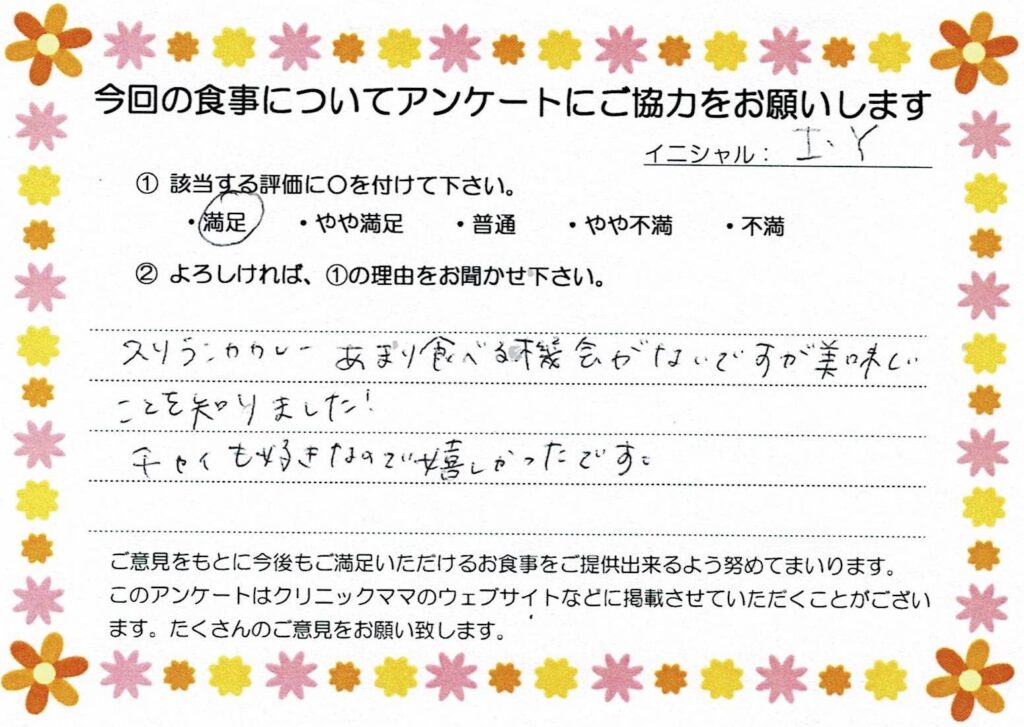 今回の食事についてアンケートにご協力をお願いします
イニシャル： I.Y
① 該当する評価に〇を付けて下さい。
・満足 ・やや満足 ・普通 ・やや不満 ・不満
② よろしければ、①の理由をお聞かせ下さい。
スリランカカレー あまり食べる機会がないですが美味しい
ことを知りました!
チャイも好きなので嬉しかったです。
ご意見をもとに今後もご満足いただけるお食事をご提供出来るよう努めてまいります。
このアンケートはクリニックママのウェブサイトなどに掲載させていただくことがござい
ます。たくさんのご意見をお願い致します。